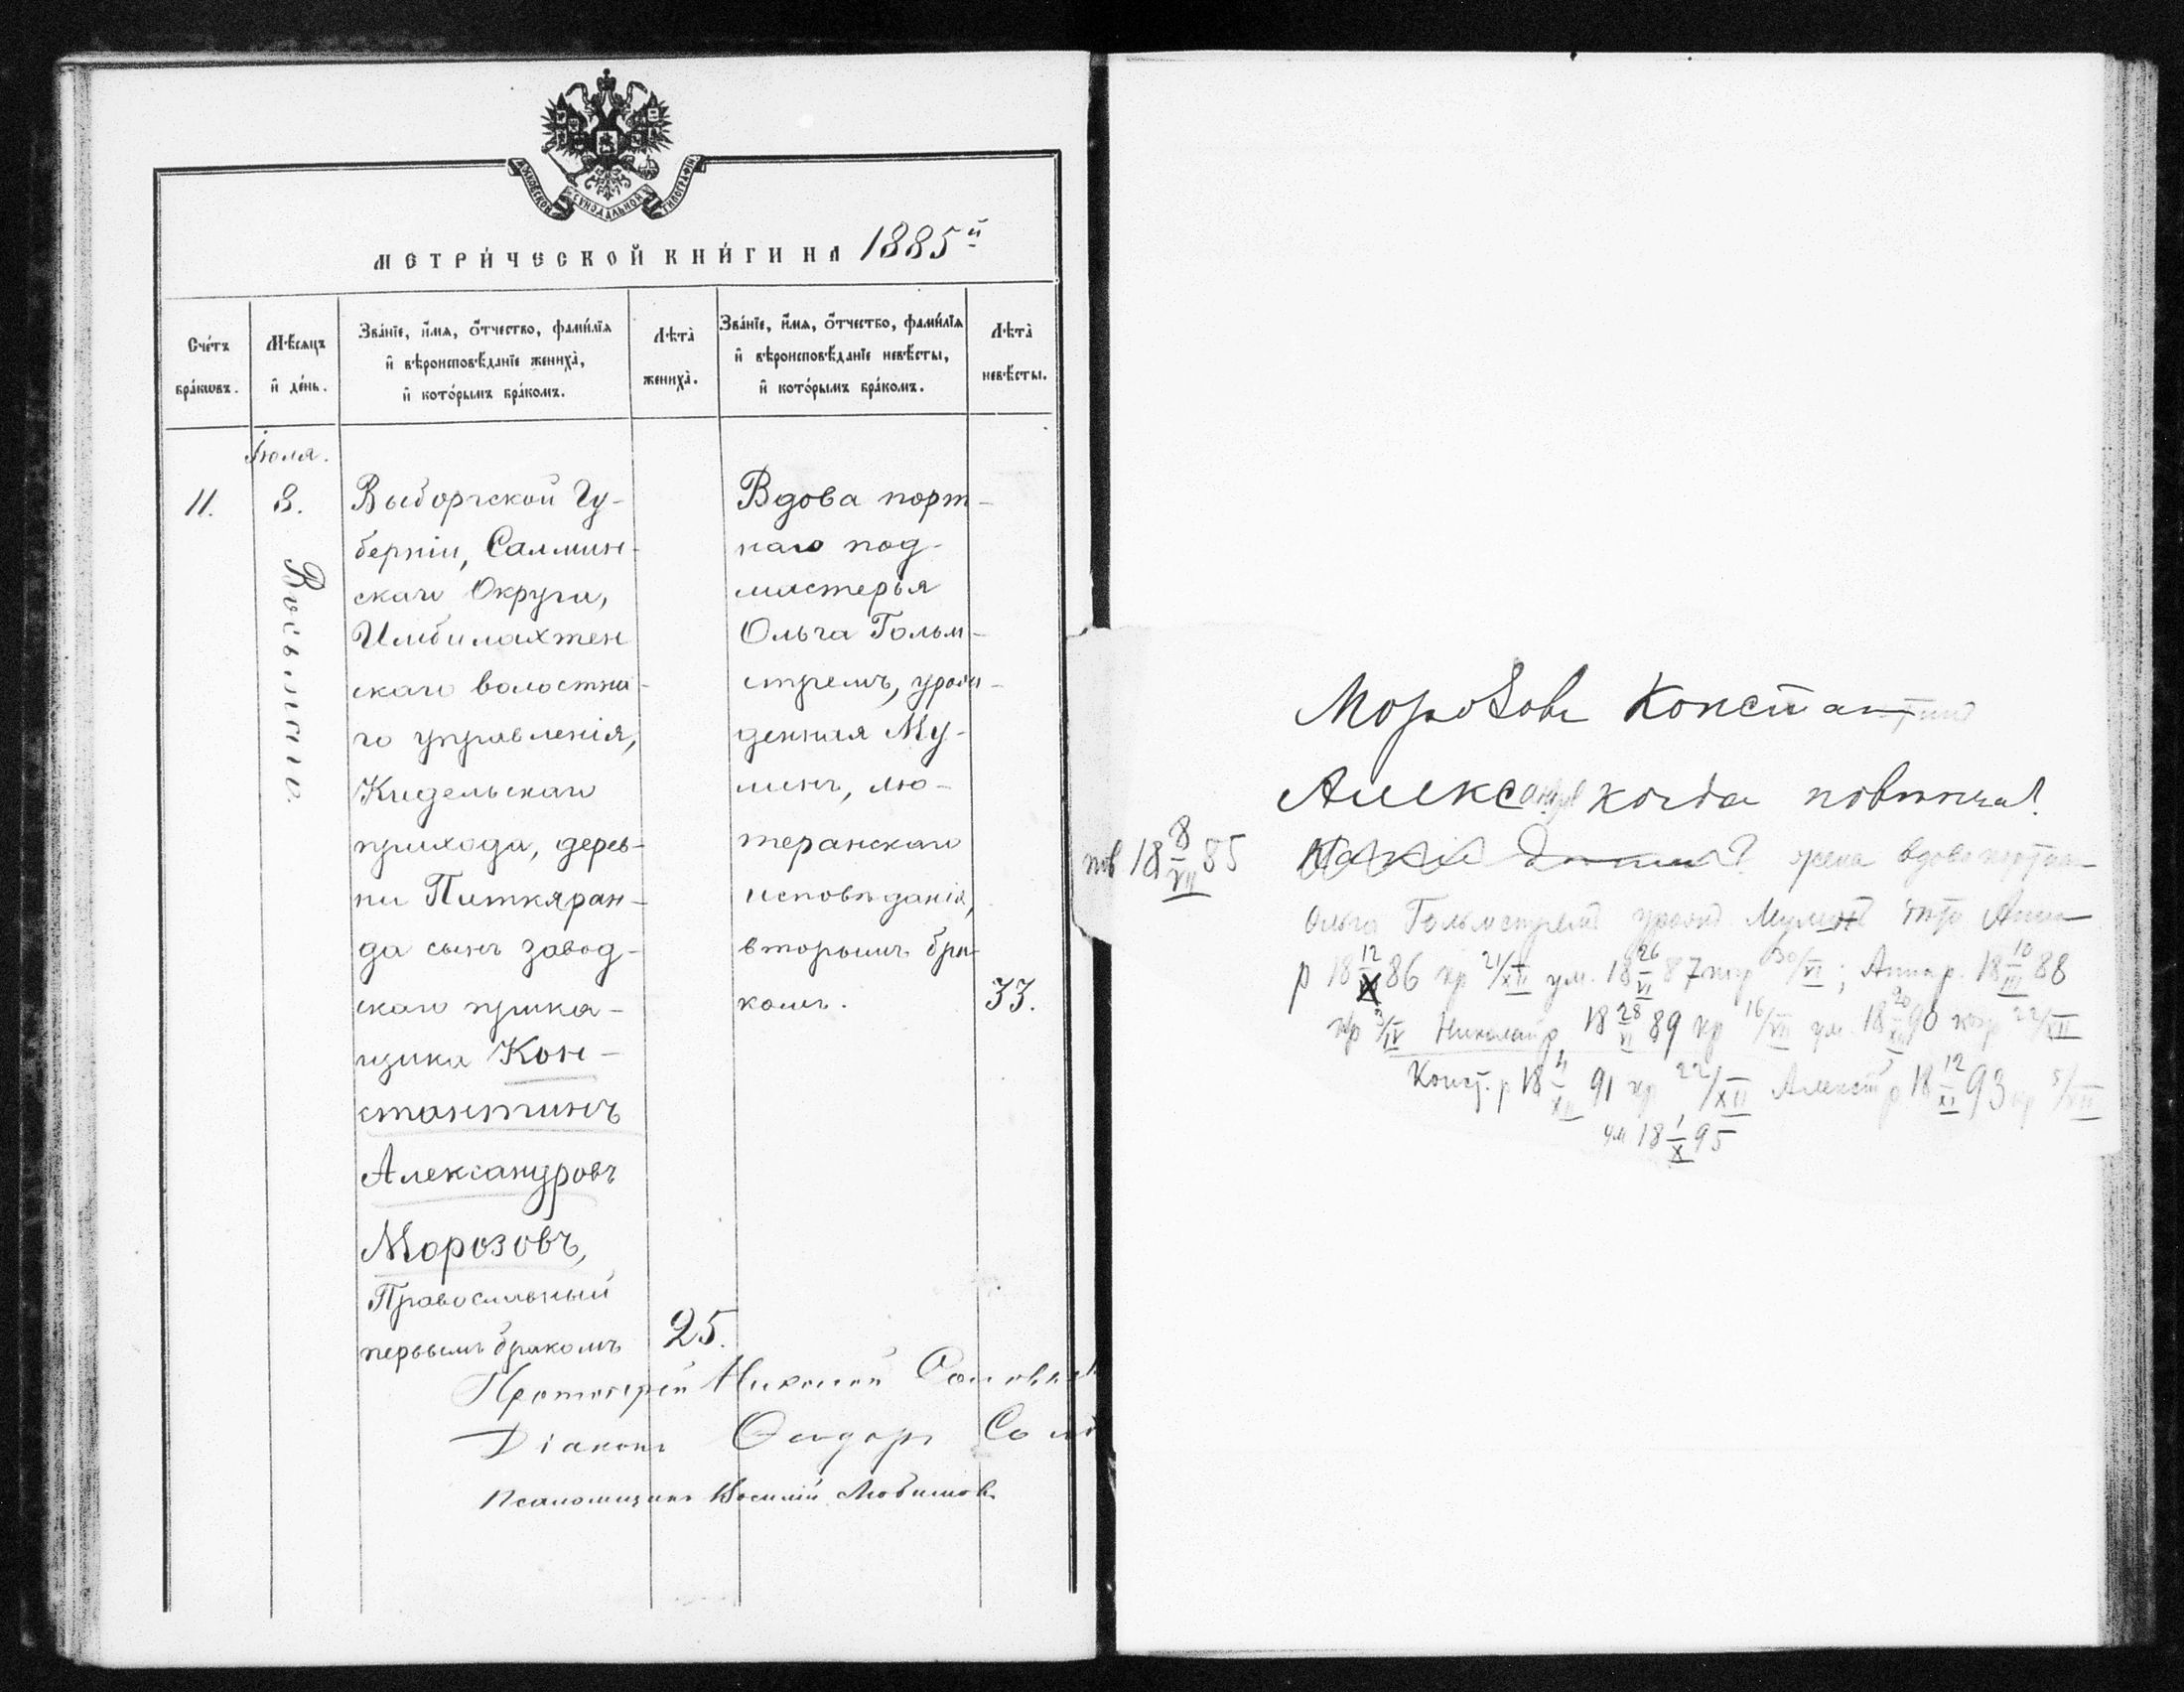 МОСКОВСКОЙ СѴНОДАЛЬНОЙ ТИПОГРАФІИ
МЕТРИ́ЧЕСКОЙ КНИ́ГИ НА 1885й
Сче́тъ бра́кѡвъ.
Мѣ́сяцъ и҆ де́нь.
Зва́нїе, и҆́мѧ, ѻ҆́тчество, фами́лїѧ
и҆ вѣроисповѣ́данїе жениха̀,
и҆ кото́рымъ бра́комъ.
Лѣта̀ жениха̀.
Зва́нїе, и҆́мѧ, ѻ҆́тчество, фами́лїѧ
и҆ вѣроисповѣ́данїе невѣ́сты,
и҆ кото́рымъ бра́комъ.
Лѣта̀ невѣ́сты.
Іюля.
11.
8.
Восьмаго.
Выборгской Гу-
берніи, Салмин-
скаго Округа,
Имбилахтен
скаго волостна-
го управленія,
Кидельскаго
прихода, дерев-
ни Питкяран-
да сынъ завод-
скаго прика-
щика Кон-
стантинъ
Александровъ
Морозовъ,
Православный
первымъ бракомъ
25.
Вдова порт-
наго под-
мастерья
Ольга Гольм-
стремъ, урож-
денная Му-
линъ, лю-
теранскаго
исповѣданія,
вторымъ бра-
комъ.
33.
Протоіерей Николай
Діаконъ
Псаломщикъ Василій Любимовъ
Морозовъ Константинъ
Александр когда повѣнчал?
пов 18 8/VII 85
жена вдова портна
Ольга Гольмстремъ урожд Мулинъ
р 18 12/X 86 кр 21/XII ум. 18 26/VI 87 30/VI ; Анна р. 18 10/III 88
кр 3/IV Николай р 18 28/VI 89 кр 16/VII ум. 18 20/XII 90 22/XII
Конст. р 18 4/XII 91 кр 22/XII Алекс р 18 12/XI 93 кр 5/XII
ум 18 1/X 95